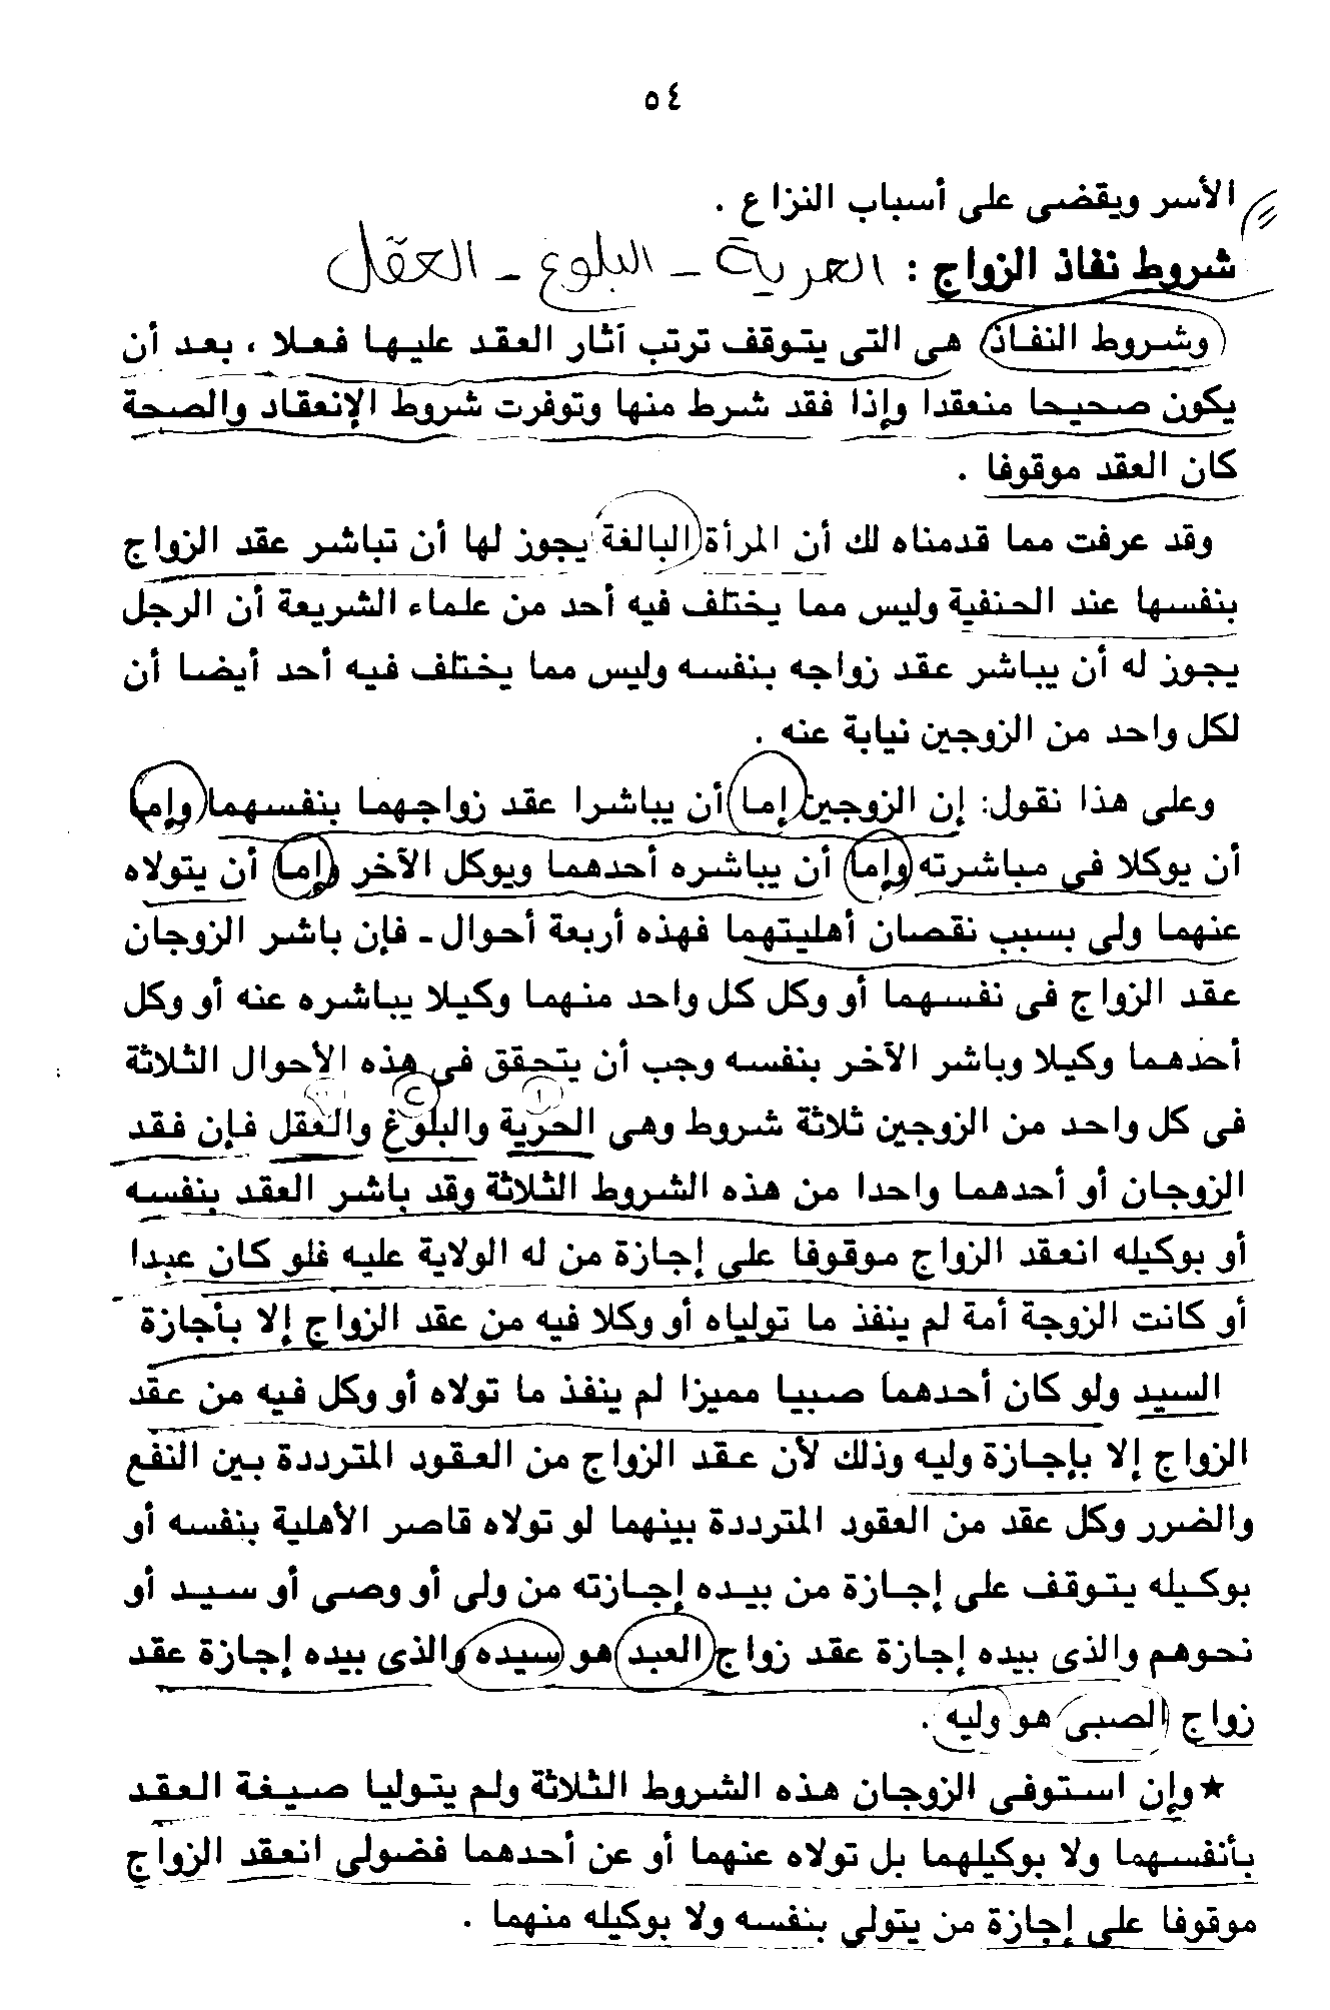 ٥٤
الأسر ويقضى على أسباب النزاع .
شروط نفاذ الزواج : الحرية - البلوغ - العقل
وشروط النفاذ هى التى يتوقف ترتب آثار العقد عليها فعلا ، بعد أن
يكون صحيحا منعقدا وإذا فقد شرط منها وتوفرت شروط الإنعقاد والصحة
كان العقد موقوفا .
وقد عرفت مما قدمناه لك أن المرأة البالغة يجوز لها أن تباشر عقد الزواج
بنفسها عند الحنفية وليس مما يختلف فيه أحد من علماء الشريعة أن الرجل
يجوز له أن يباشر عقد زواجه بنفسه وليس مما يختلف فيه أحد أيضا أن
لكل واحد من الزوجين نيابة عنه .
وعلى هذا نقول: إن الزوجين إما أن يباشرا عقد زواجهما بنفسهما وإما
أن يوكلا فى مباشرته وإما أن يباشره أحدهما ويوكل الآخر وإما أن يتولاه
عنهما ولى بسبب نقصان أهليتهما فهذه أربعة أحوال - فإن باشر الزوجان
عقد الزواج فى نفسهما أو وكل كل واحد منهما وكيلا يباشره عنه أو وكل
أحدهما وكيلا وباشر الآخر بنفسه وجب أن يتحقق فى هذه الأحوال الثلاثة
فى كل واحد من الزوجين ثلاثة شروط وهى الحرية والبلوغ والعقل فإن فقد
الزوجان أو أحدهما واحدا من هذه الشروط الثلاثة وقد باشر العقد بنفسه
أو بوكيله انعقد الزواج موقوفا على إجازة من له الولاية عليه فلو كان عبدا
أو كانت الزوجة أمة لم ينفذ ما تولياه أو وكلا فيه من عقد الزواج إلا بأجازة
السيد ولو كان أحدهما صبيا مميزا لم ينفذ ما تولاه أو وكل فيه من عقد
الزواج إلا بإجازة وليه وذلك لأن عقد الزواج من العقود المترددة بين النفع
والضرر وكل عقد من العقود المترددة بينهما لو تولاه قاصر الأهلية بنفسه أو
بوكيله يتوقف على إجازة من بيده إجازته من ولى أو وصى أو سيد أو
نحوهم والذى بيده إجازة عقد زواج العبد هو سيده والذى بيده إجازة عقد
زواج الصبى هو وليه .
★ وإن استوفى الزوجان هذه الشروط الثلاثة ولم يتوليا صيغة العقد
بأنفسهما ولا بوكيلهما بل تولاه عنهما أو عن أحدهما فضولى انعقد الزواج
موقوفا على إجازة من يتولى بنفسه ولا بوكيله منهما .